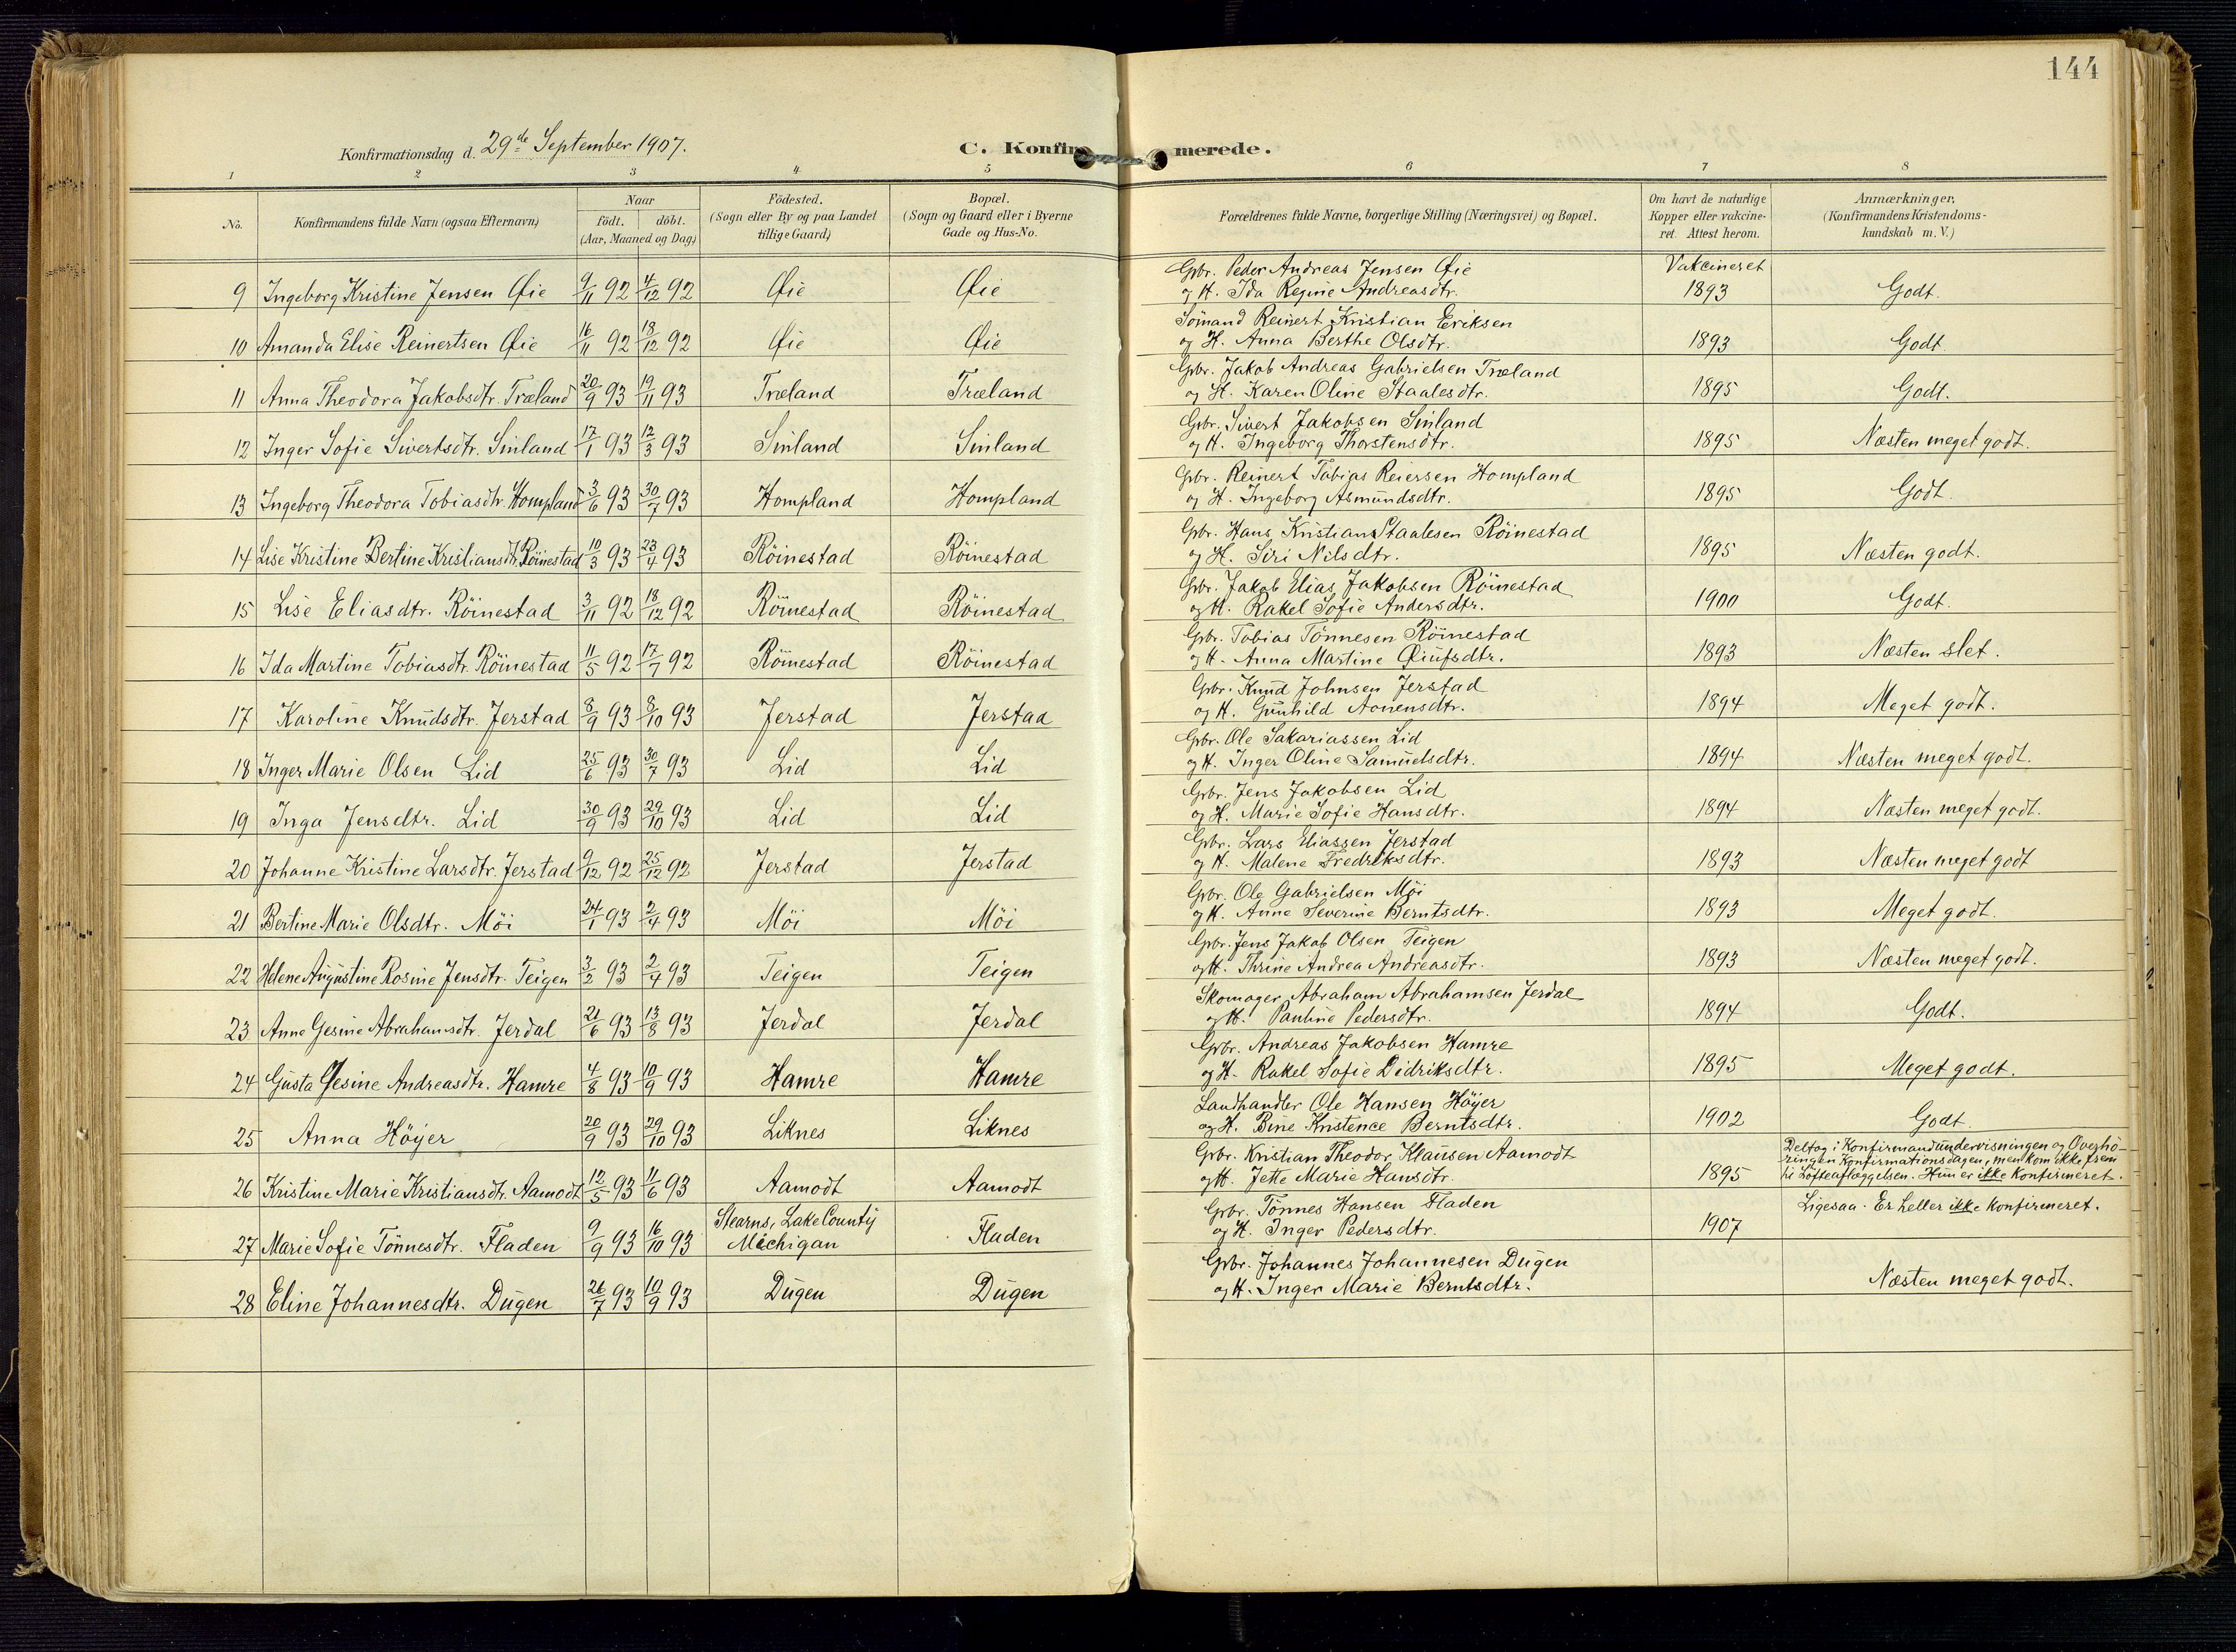 144
Konfirmationsdag d. 29de September 1907.
C. Konfirmerede.
1 2 3 4 5 6 7 8
No.
Konfirmandens fulde Navn (ogsaa Efternavn)
Naar
födt. döbt.
(Aar, Maaned og Dag)
Födested.
(Sogn eller By og paa Landet
tillige Gaard)
Bopæl.
(Sogn og Gaard eller i Byerne
Gade og Hus-No.
Forældrenes fulde Navne, borgerlige Stilling (Næringsvei) og Bopæl.
Om havt de naturlige
Kopper eller vakcine-
ret. Attest herom.
Anmærkninger,
(Konfirmandens Kristendoms-
kundskab m. V.)
Gbr. Peder Andreas Jensen Øie Vakcineret
9 Ingeborg Kristine Jensen Øie 9/11 92 4/12 92 Øie Øie og H. Ida Regine Andreasdtr. 1893 Godt.
Sömand Reinert Kristian Eriksen
10 Amanda Elise Reinertsen Øie 16/11 92 18/12 92 Øie Øie og H. Anna Berthe Olsdtr. 1893 Godt.
Gbr. Jakob Andreas Gabrielsen Træland
11 Anna Theodora Jakobsdtr. Træland 20/9 93 19/11 93 Træland Træland og H. Karen Oline Staalesdtr. 1895 Godt.
Gbr. Sivert Jakobsen Sinland
12 Inger Sofie Sivertsdtr. Sinland 17/1 93 12/3 93 Sinland Sinland og H. Ingeborg Thorstensdtr. 1895 Næsten meget godt.
Gbr. Reinert Tobias Reiersen Hompland
13 Ingeborg Theodora Tobiasdtr. Hompland 3/6 93 30/7 93 Hompland Hompland og H. Ingeborg Asmundsdtr. 1895 Godt.
Gbr. Hans Kristian Staalesen Röinestad
14 Lise Kristine Bertine Kristiansdtr. Röinestad 10/3 93 23/4 93 Röinestad Röinestad og H. Siri Nilsdtr. 1895 Næsten godt.
Gbr. Jakob Elias Jakobsen Röinestad
15 Lise Eliasdtr. Röinestad 3/11 92 18/12 92 Röinestad Röinestad og H. Rakel Sofie Andersdtr. 1900 Godt.
Gbr. Tobias Tönnesen Röinestad
16 Ida Martine Tobiasdtr. Röinestad 11/5 92 17/7 92 Röinestad Röinestad og H. Anna Martine 1893 Næsten slet.
Gbr. Knud Johnsen Jerstad
17 Karoline Knudsdtr. Jerstad 8/9 93 8/10 93 Jerstad Jerstad og H. Gunhild Aanensdtr. 1894 Meget godt.
Gbr. Ole Sakariassen Lid
18 Inger Marie Olsen Lid 25/6 93 30/7 93 Lid Lid og H. Inger Oline Samuelsdtr. 1894 Næsten meget godt.
Gbr. Jens Jakobsen Lid
19 Inga Jensdtr. Lid 30/9 93 29/10 93 Lid Lid og H. Marie Sofie Hansdtr. 1894 Næsten meget godt.
Gbr. Lars Eliassen Jerstad
20 Johanne Kristine Larsdtr. Jerstad 9/12 92 25/12 92 Jerstad Jerstad og H. Malene Fredriksdtr. 1893 Næsten meget godt
Gbr. Ole Gabrielsen Möi
21 Bertine Marie Olsdtr. Möi 24/1 93 2/4 93 Möi Möi og H. Anne Severine Berntsdtr. 1893 Meget godt.
Gbr. Jens Jakob Olsen Teigen
22 Helene Augustine Rosine Jensdtr. Teigen 3/2 93 2/4 93 Teigen Teigen og H. Thrine Andrea Andreasdtr. 1893 Næsten meget godt.
Skomager Abraham Abrahamsen Jerdal
23 Anne Gesine Abrahamsdtr. Jerdal 21/6 93 13/8 93 Jerdal Jerdal og H. Pauline Pedersdtr. 1894 Godt.
Gbr. Andreas Jakobsen Hamre
24 Gusta Gesine Andreasdtr. Hamre 4/8 93 10/9 93 Hamre Hamre og H. Rakel Sofie Didriksdtr. 1895 Meget godt.
Landhandler Ole Hansen Höyer
25 Anna Höyer 20/9 93 29/10 93 Liknes Liknes og H. Bine Kristence Berntsdtr. 1902 Godt.
Gbr. Kristian Theodor Klausen Aamodt Deltog i Konfirmandundervisningen og Overhö-
ringen Konfirmationsdagen, men kom ikke frem
26 Kristine Marie Kristiansdtr. Aamodt 12/5 93 11/6 93 Aamodt Aamodt og H. Jette Marie Hansdtr. 1895 til Löfteaflæggelsen. Hun er ikke konfirmeret.
Stearns, Lake County Gbr. Tönnes Hansen Fladen Ligesaa. Er heller ikke konfirmeret.
27 Marie Sofie Tönnesdtr. Fladen 9/9 93 16/10 93 Michigan Fladen og H. Inger Pedersdtr. 1907
Gbr. Johannes Johannesen Dugen
28 Eline Johannesdtr. Dugen 26/7 93 10/9 93 Dugen Dugen og H. Inger Marie Berntsdtr. Næsten meget godt.